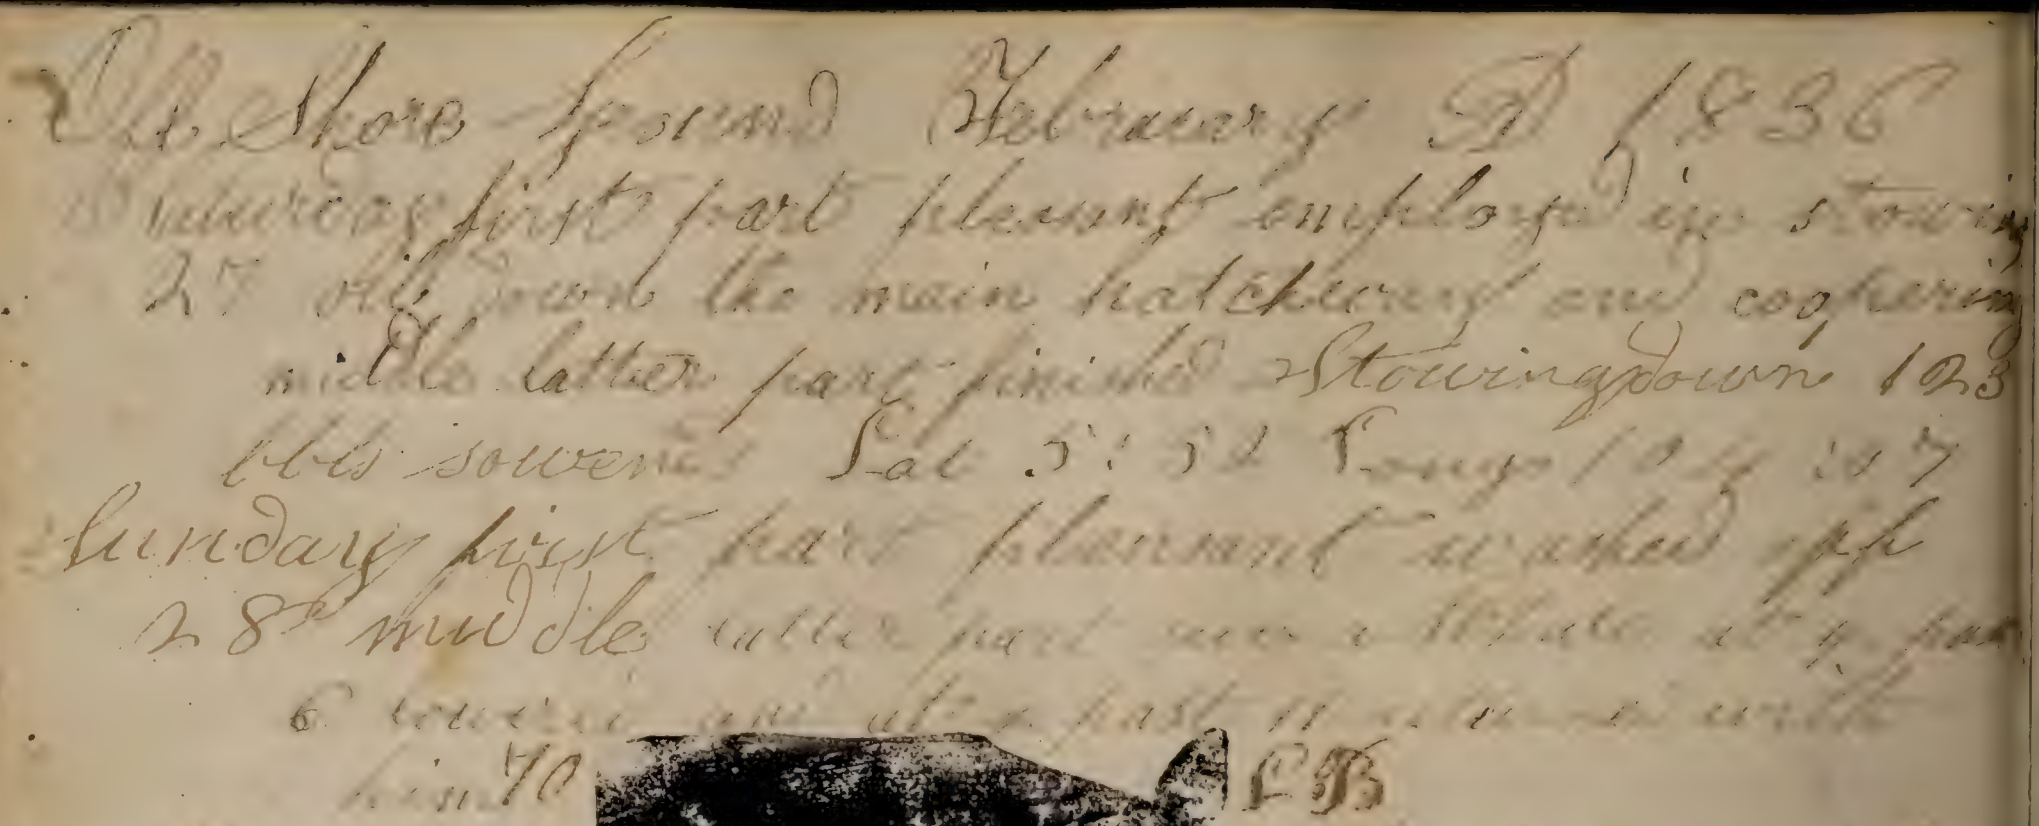 Off Shore Ground February D 1836
Saturday first part plesant employed in stowing
27 oil down the main hatchway and coopering
middle latter part finished Stowing down 123
bbls sowend Lat 5:52 Long
Sunday first part pleasant washed off
28 middle latter part saw whales at ½ past
6 lowered and at past with
him 70 LB